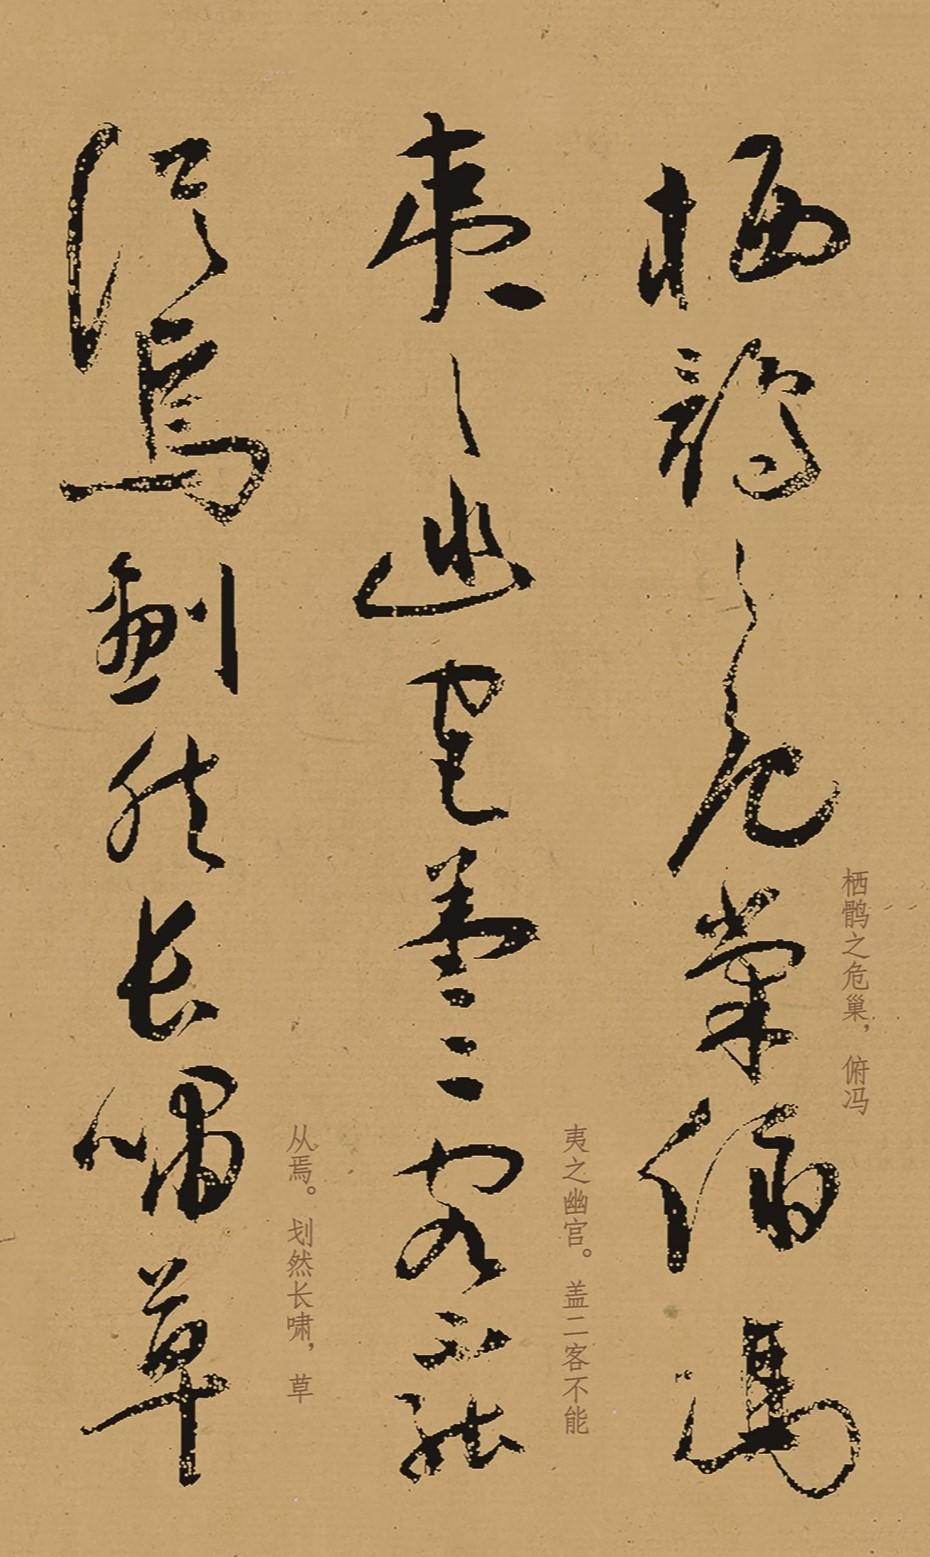 栖鹘之危巢俯冯
栖鹘之危巢，俯冯
夷之幽宫盖二客不能
夷之幽宫。盖二客不能
从焉划然长啸草
从焉。划然长啸，草